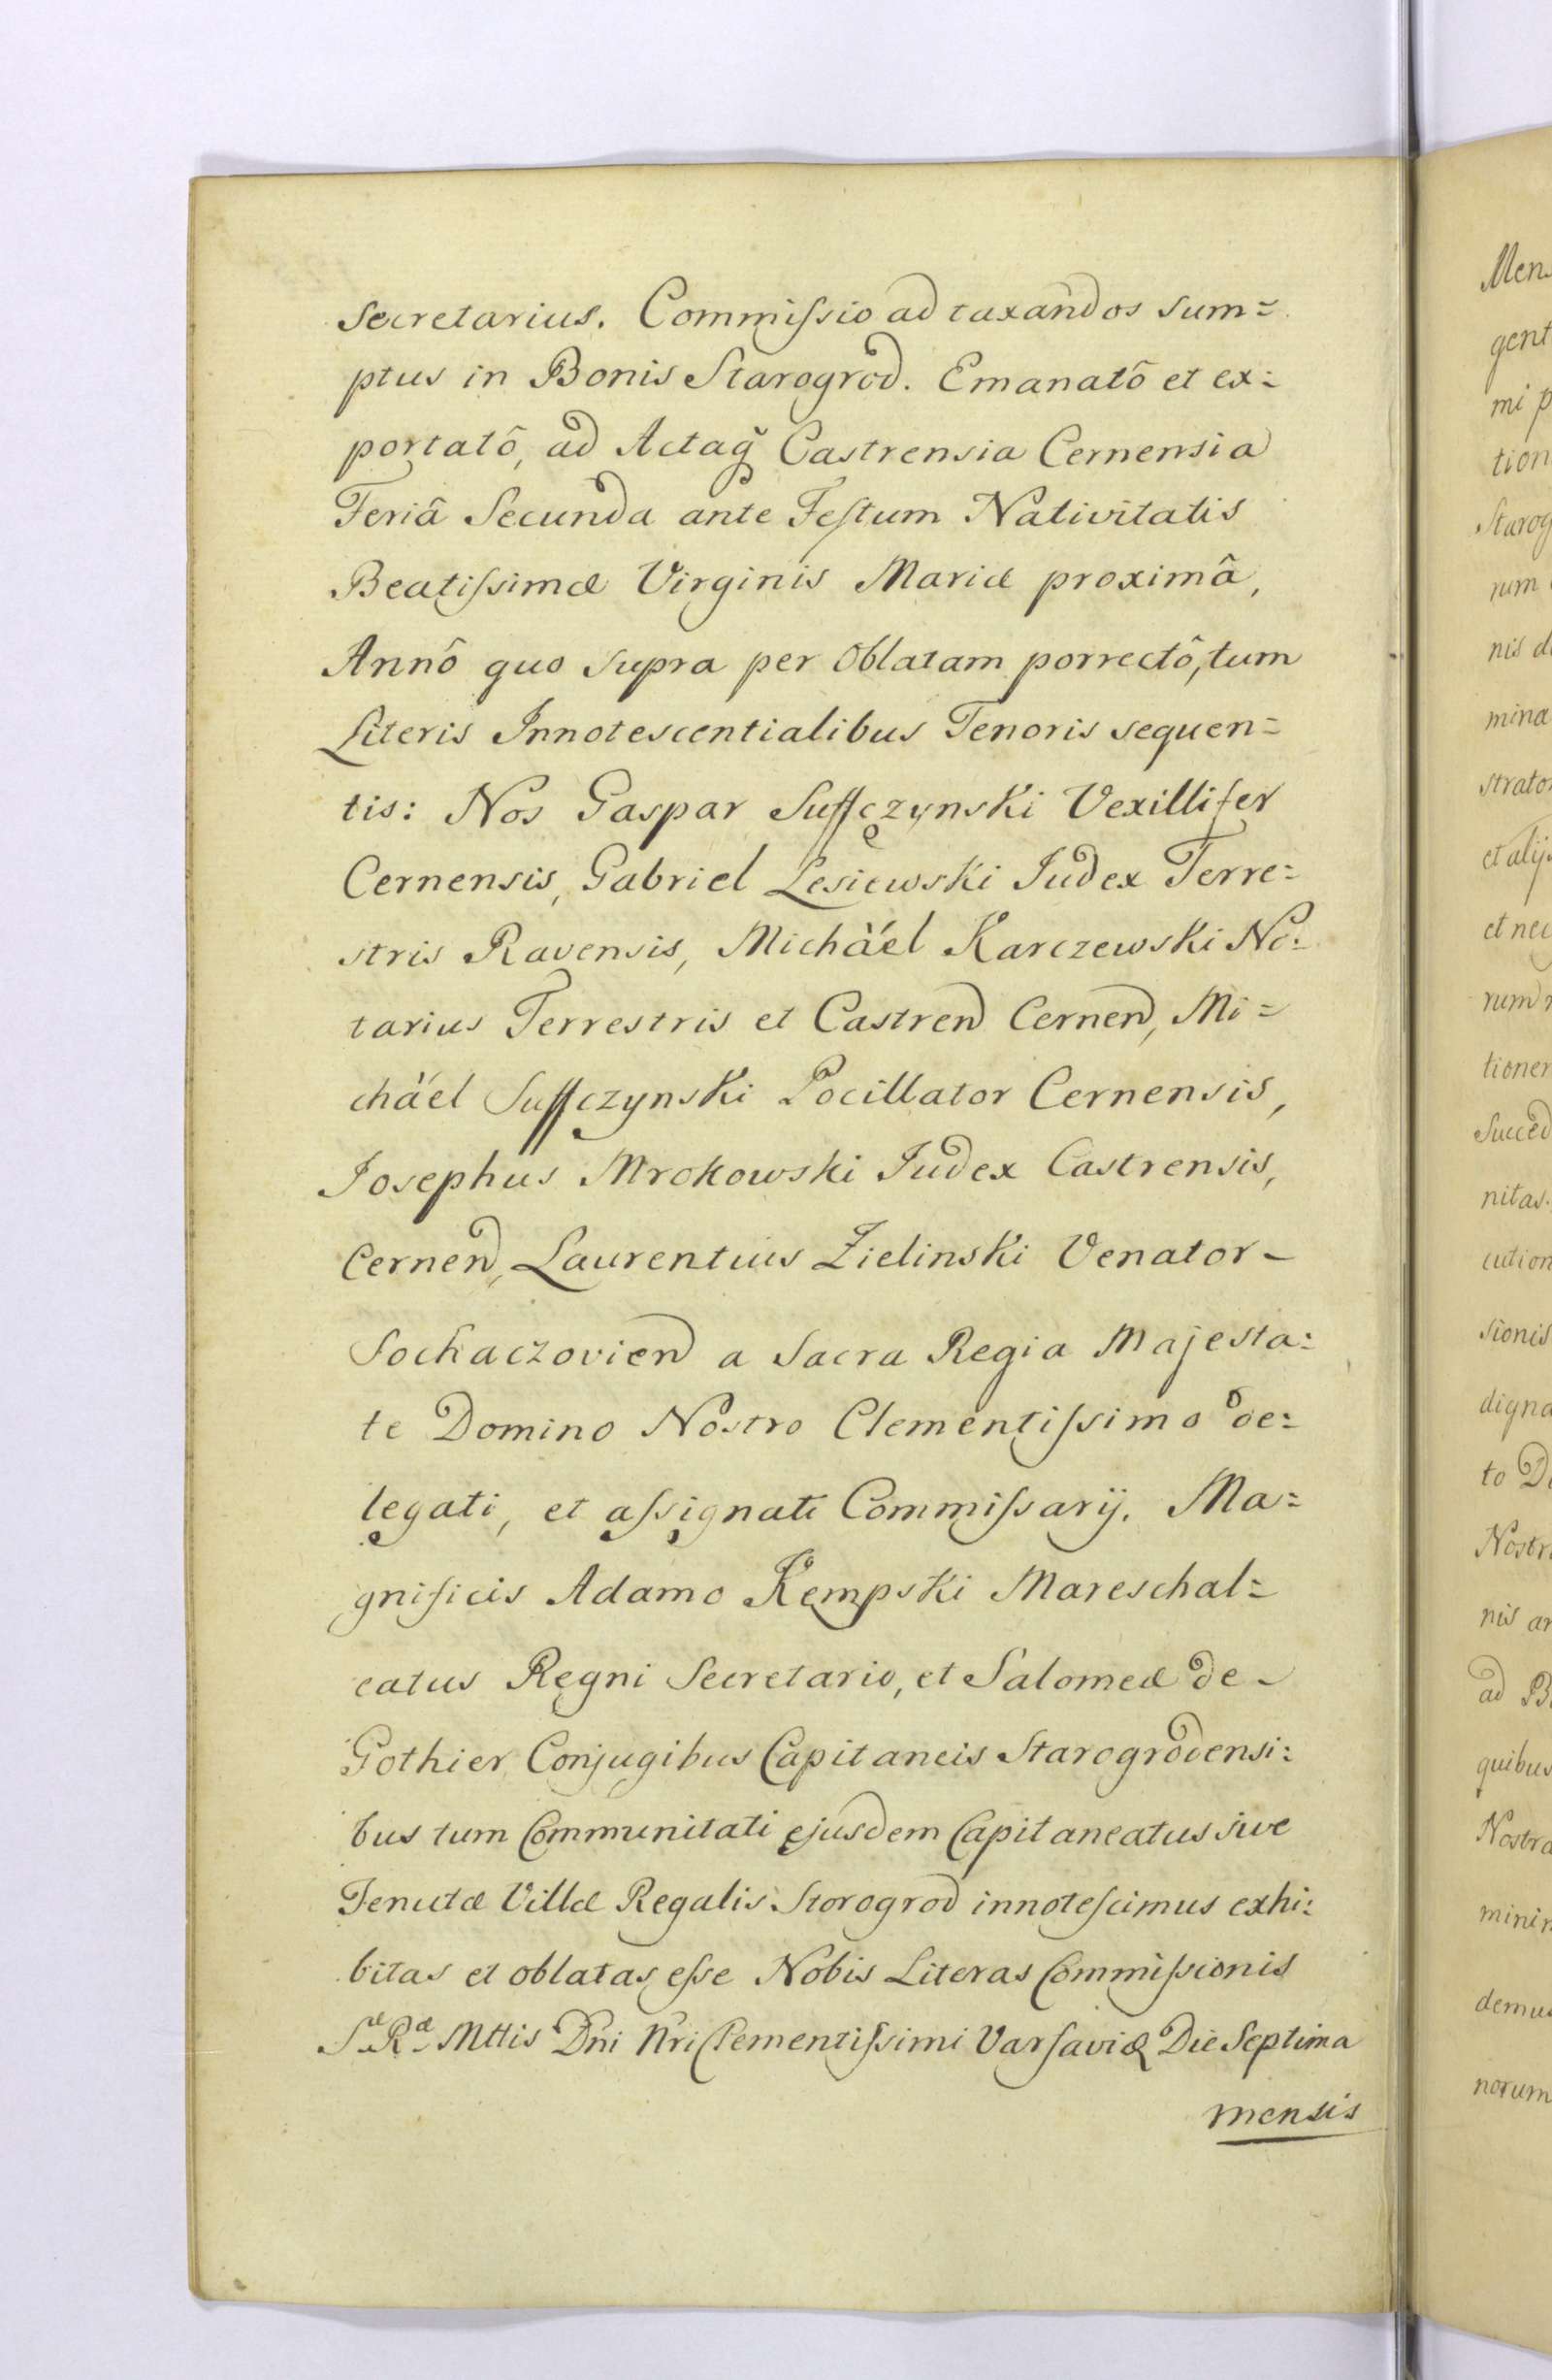 Secretarius. Commiſsio ad taxandos Sum=
ptus in Bonis Starogrod. Emanatô et ex=
portatô, ad Actaq̃ Castrensia Cernensia
Feriâ Secunda ante Feſtum Nativitatis
Beatiſsimæ Virginis Mariæ proximâ,
Annô quo supra per Oblatam porrectô, tum
Literis Innotescentialibus Tenoris sequen=
tis: Nos Gaspar Suffczynski Vexillifer
Cernensis, Gabriel Lesiewski Iudex Terre=
stris Ravensis, Michàél Karczewski No=
tarius Terrestris et Castren Cernen, Mi=
chàél Suffczynski Pocillator Cernensis,
Iosephus Mrokowski Iudex Castrensis,
Cernen, Laurentius Zielinski Venator -
Sochaczovien a Sacra Regia Majesta=
te Domino Nostro Clementiſsimo de=
legati, et aſsignati Commiſsarij. Ma=
gnificis Adamo Kempski Mareschal=
catus Regni Secretario, et Salomeæ de -
Gothier Conjugibus Capitaneis Starogrodensi=
bus tum Communitati ejusdem Capitaneatus sive
Tenutæ Villæ Regalis Storogrod innoteſcimus exhi=
bitas et oblatas eſse Nobis Literas Commiſsionis
Sæ Ræ Mttis Dni Nri Clementiſsimi Varſaviæ Die Septima
mensis
Men
gent
mi p
tion
Starog
rum
nis d
mina
strato
et alij
et nec
rum
tioner
Succed
nitas
cution
sionis
digna
to D
Nostr
nis ar
ad B
quibus
Nostra
minim
demus
norum